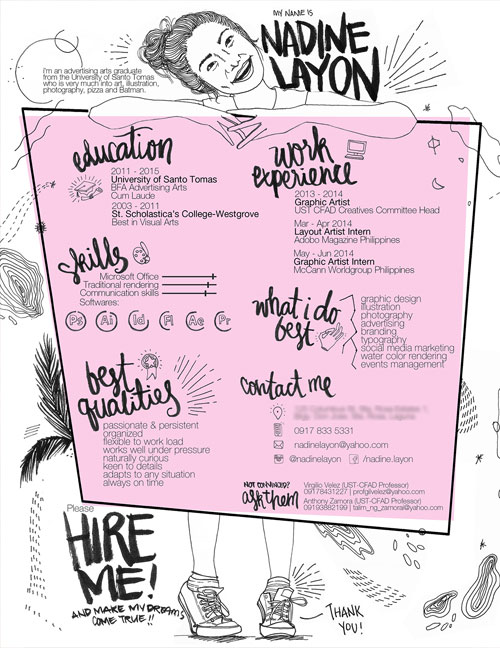 MY NAME IS
NADINE
LAYON
i'm an advertising arts graduate
from the University of Santo Tomas
who is very much into art, illustration,
photography, pizza and Batman.
education
2011 - 2015
University of Santo Tomas
BFA Advertising Arts
Cum Laude
2003 - 2011
St. Scholastica's College-Westgrove
Best in Visual Arts
work
experience
2013 - 2014
Graphic Artist
UST CFAD Creatives Committee Head
Mar - Apr 2014
Layout Artist Intern
Adobo Magazine Philippines
May - Jun 2014
Graphic Artist Intern
McCann Worldgroup Philippines
skills
Microsoft Office
Traditional rendering
Communication skills
Softwares:
Ps Ai Id Fl Ae Pr
what i do
best
graphic design
illustration
photography
advertising
branding
typography
social media marketing
water color rendering
events management
best
qualities
passionate & persistent
organized
flexible to work load
works well under pressure
naturally curious
keen to details
adapts to any situation
always on time
contact me
0917 833 5331
nadinelayon@yahoo.com
@nadinelayon f /nadine.layon
NOT CONVINCED?
ask them
Virgilio Velez (UST-CFAD Professor)
09178431227 | profgilvelez@yahoo.com
Anthony Zamora (UST-CFAD Professor)
09193862199 | talim_ng_zamora@yahoo.com
Please
HIRE
ME!
AND MAKE MY DREAMS
COME TRUE!!
THANK
YOU!